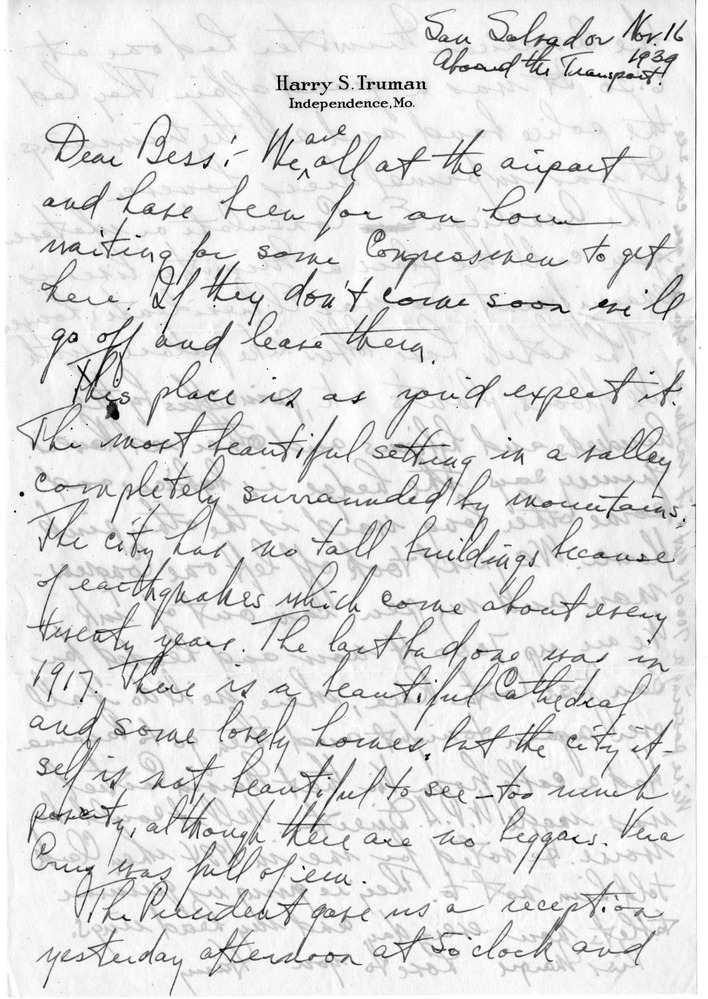 San Salvador Nov. 16
1939
Aboard the Transport!
Harry S. Truman
Independence, Mo.
Dear Bess:- We are all at the airport
and have been for an hour
waiting for some Congressmen to get
here. If they don't come soon we'll
go off and leave them.
This place is as you'd expect it.
The most beautiful setting in a valley
completely surrounded by mountains.
The city has no tall buildings because
of earthquakes which come about every
twenty years. The last bad one was in
1917. There is a beautiful Cathedral
and some lovely homes, but the city it-
self is not beautiful to see - too much
poverty, although there are no beggars. Vera
Cruz was full of 'em.
The President gave us a reception
yesterday afternoon at 5 o'clock and